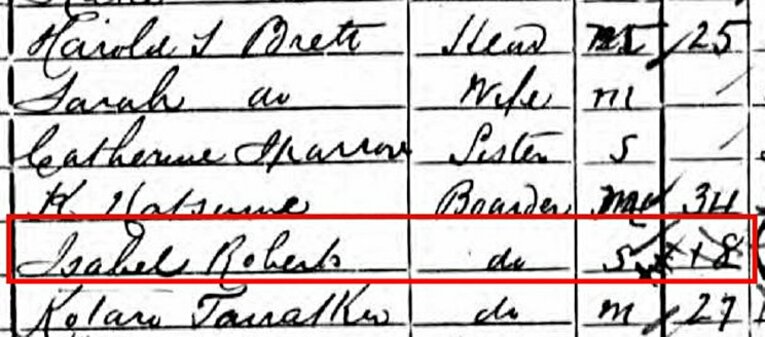 Harold S Brett Head M 25
Sarah do Wife M
Catherine Sparrow Sister S
K Boarder M 34
Isabel Roberts do S 18
Kotaro do M 27